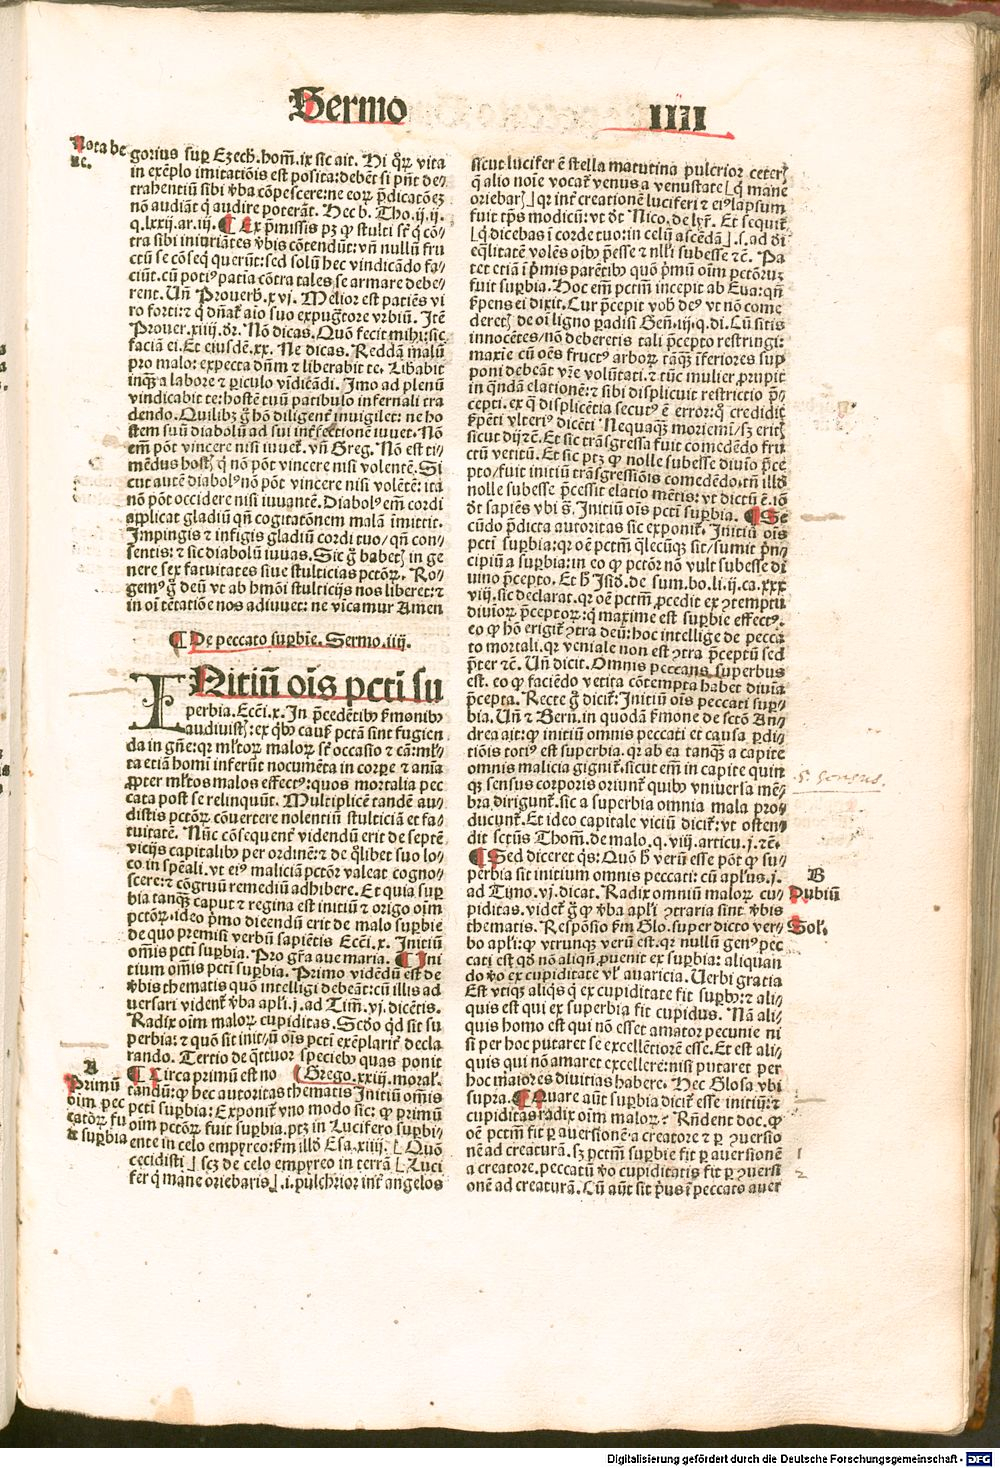 Sermo IIII
Nota be
ne.
gorius suꝑ Ezech. hom̃. ix sic ait. Hi q̃ꝝ vita
in exẽplo imitatiõis est posita: debẽt si pñt de⸗
trahentiũ sibi v̓ba cõpescere: ne eoꝝ p̃dicatõeʒ
nõ audiãt q̇ audire poterãt. Hec b. Tho. ij. ij.
q. lxxij. ar. iij. ¶ Ex p̃missis pʒ ꝙ stulti sũt q̇ cõ⸗
tra sibi iniuriãtes v̓bis cõtendũt: vñ nullũ fru
ctũ se cõseq̇ querũt: sed solũ hec vindicãdo fa⸗
ciũt. cũ potiꝰ patiẽtia cõtra tales se armare debe⸗
rent. Uñ Prouerb. xvj. Melior est patiẽs vi
ro forti: ⁊ q̇ dñat᷑ aĩo suo expugtore vrbiũ. Itẽ
Prouer. xiiij. dr̃. Nõ dicas. Quõ fecit mihi: sic
faciã ei. Et eiusdẽ. xx. Ne dicas. Reddã malũ
pro malo: expecta dñm ⁊ liberabit te. Libabit
inqꝫ a labore ⁊ ꝑiculo vĩdicãdi. Imo ad plenũ
vindicabit te: hostẽ tuũ patibulo infernali tra
dendo. Quilibꝫ g̃ hõ diligent᷑ inuigilet: ne ho
stem suũ diabolũ ad sui int᷑fectionẽ iuuet. Nõ
em̃ põt vincere nisi iuuet᷑. vñ Greg. Nõ est ti⸗
mẽdus hostꝭ q̇ nõ põt vincere nisi volentẽ. Si
cut autẽ diabolꝰ nõ põt vincere nisi volẽtẽ: ita
nõ põt occidere nisi iuuantẽ. Diabolꝰ em̃ cordi
applicat gladiũ qñ cogitatõnem malã imittit.
Impingis ⁊ infigis gladiũ cordi tuo/ qñ con⸗
sentis: ⁊ sic diabolũ iuuas. Sic g̃ habetꝭ in ge
nere sex fatuitates siue stulticias pctõꝝ. Ro⸗
gemꝰ g̃ deũ vt ab hmõi stulticijs nos liberet: ⁊
in oĩ tẽtatiõe nos adiuuet: ne vĩcamur Amen
¶ De peccato suꝑbie. Sermo. iiij.
INitiũ oĩs pctĩ su
perbia. Ecci. x. In p̃cedẽtibꝰ s̓monibꝰ
audiuistꝭ: ex q̇bꝰ causꝭ pctã sint fugien
da in gñe: qꝛ ml̓toꝝ maloꝝ st̃ occasio ⁊ cã: ml̓⸗
ta etiã homĩ inferũt nocumẽta in corꝑe ⁊ aĩa
ꝓpter ml̓tos malos effectꝰ: quos mortalia pec
cata post se relinquũt. Multiplicẽ tandẽ au⸗
distis pctõꝝ cõuertere nolentiũ stulticiã et fa⸗
tuitatẽ. Nũc cõsequent᷑ videndũ erit de septẽ
vicijs capitalibꝰ per ordinẽ: ⁊ de q̇libet suo lo⸗
co in sp̃eali. vt eiꝰ maliciã pctõꝝ valeat cogno⸗
scere: ⁊ cõgruũ remediũ adhibere. Et quia suꝑ
bia tanqꝫ caput ⁊ regina est initiũ ⁊ origo oĩm
pctõꝝ. ideo p̃mo dicendũ erit de malo suꝑbie
de quo premisi verbũ sapiẽtis Ecci. x. Initiũ
om̃is pctĩ suꝑbia. Pro gr̃a aue maria. ¶ Ini
tium om̃is pctĩ suꝑbia. Primo vidẽdũ est de
v̓bis thematis quõ intelligi debeãt: cũ illis ad
uersari vident᷑ v̓ba apl̓i. j. ad Tim̃. vj. dicẽtis.
Radix oĩm maloꝝ cupiditas. Scd̓o qd̓ sit su
perbia: ⁊ quõ sit initiũ oĩs pctĩ exẽplarit᷑ decla
rando. Tertio de q̇ttuor speciebꝰ quas ponit
Grego. xxiij. moral̓.
A
Primũ
oĩm pec
catoꝝ fu
it suꝑbia
¶ Circa primũ est no
tandũ: ꝙ hec autoritas thematis Initiũ om̃is
pctĩ suꝑbia: Exponit᷑ vno modo sic: ꝙ primũ
oĩm pctõꝝ fuit suꝑbia. ptꝫ in Lucifero suꝑbi⸗
ente in celo empyreo: s̓m illd̓ Esa. xiiij. [Quõ
cecidisti] scꝫ de celo empyreo in terrã [Luci
fer q̇ mane oriebaris]. i. pulchrior int᷑ angelos
sicut lucifer ẽ stella matutina pulcrior ceterꝭ
q̃ alio noĩe vocat᷑ venus a venustate [q̇ mane
oriebarꝭ] qꝛ int᷑ creationẽ luciferi ⁊ eiꝰ lapsum
fuit tp̃s modicũ: vt dt̃ Nico. de lyr̃. Et sequit᷑
[q̇ dicebas ĩ corde tuo: in celũ ascẽdã]. s. ad dĩ
eq̃litatẽ volẽs oĩbꝰ p̃esse ⁊ nl̓li subesse ⁊c̃. Pa
tet etiã ĩ p̃mis parẽtibꝰ quõ p̃mũ oĩm pctõruꝫ
fuit suꝑbia. Hoc em̃ pctm̃ incepit ab Eua: qñ
s̓pens ei dixit. Cur p̃cepit vob̓ deꝰ vt nõ come
deretꝭ de oĩ ligno ꝑadisi Geñ. iij. q. di. Cũ sitis
innocẽtes/ nõ deberetis tali p̃cepto restringi:
maxĩe cũ oẽs fructꝰ arboꝝ tãqꝫ ĩferiores sup
poni debeãt vr̃e volũtati. ⁊ tũc mulier ꝓrupit
in qñdã elationẽ: ⁊ sibi displicuit restrictio p̃⸗
cepti. ex q̃ displicẽtia secutꝰ ẽ error: q̃ credidit
s̓pẽti vlteriꝰ dicẽti Nequaqꝫ moriemĩ/ sꝫ eritꝭ
sicut dij ⁊c̃. Et sic trãsgressa fuit comedẽdo fru
ctũ vetitũ. Et sic ptꝫ ꝙ nolle subesse diuĩo p̃ce
pto/ fuit initiũ trãsgressiõis comedẽdo. tñ illd̓
nolle subesse p̃cessit elatio mẽtis: vt dictũ ẽ. iõ
dt̃ sapiẽs vbi s̃. Initiũ oĩs pctĩ suꝑbia. ¶ Se
cũdo p̃dicta autoritas sic exponit᷑. Initiũ oĩs
pctĩ suꝑbia: qꝛ oẽ pctm̃ q̇lecũqꝫ sit/ sumit p̃n⸗
cipiũ a suꝑbia: in eo ꝙ pctõr nõ vult subesse di
uino p̃cepto. Et h̃ Isid̓. de sum. bo. li. ij. ca. xxx
viij. sic declarat. qꝛ oẽ pctm̃ ꝓcedit ex ꝯtemptu
diuinoꝝ p̃ceptoꝝ: q̇ maxime est suꝑbie effectꝰ.
eo ꝙ hõ erigit᷑ ꝯtra deũ: hoc intellige de pecca
to mortali. qꝛ veniale non est ꝯtra p̃ceptũ sed
p̃ter ⁊c̃. Uñ dicit. Omnis peccans superbus
est. eo ꝙ faciẽdo vetita cõtempta habet diuĩa
p̃cepta. Recte g̃ dicit᷑: Initiũ oĩs peccati suꝑ⸗
bia. Uñ ⁊ Berñ. in quodã s̓mone de sctõ An⸗
drea ait: ꝙ initiũ omnis peccati et causa ꝑdi⸗
tiõis totiꝰ est superbia. qꝛ ab ea tanqꝫ a capite
omnis malicia gignit᷑. sicut em̃ in capite quin
qꝫ sensus corporis oriunt᷑ quibꝰ vniuersa mẽ⸗
bra dirigunt᷑. sic a superbia omnia mala pro⸗
ducunt᷑. Et ideo capitale viciũ dicit᷑: vt osten⸗
dit sctũs Thom̃. de malo. q. viij. articu. j. ⁊c̃.
¶ Sed diceret q̇s: Quõ h̃ verũ esse põt ꝙ su⸗
perbia sit initium omnis peccati: cũ apl̓us. j.
ad Tymo. vj. dicat. Radix omniũ maloꝝ cu⸗
piditas. videt᷑ g̃ ꝙ v̓ba apl̓i ꝯtraria sint v̓bis
thematis. Respõsio s̓m Glo. super dicto ver⸗
bo apl̓i: ꝙ vtrunqꝫ verũ est. qꝛ nullũ genꝰ pec
cati est qd̓ nõ aliqñ ꝓuenit ex suꝑbia: aliquan
do v̓o ex cupiditate vl̓ auaricia. Uerbi gratia
Est vtiqꝫ aliq̇s q̇ ex cupiditate fit suꝑbꝰ: ⁊ ali⸗
quis est qui ex superbia fit cupidus. Nã ali⸗
quis homo est qui nõ esset amator pecunie ni
si per hoc putaret se excellẽtiorẽ esse. Et est ali⸗
quis qui nõ amaret excellere: nisi putaret per
hoc maiores diuitias habere. Hec Glosa vbi
supra. ¶ Quare aũt suꝑbia dicit᷑ esse initiũ: ⁊
cupiditas radix oĩm maloꝝ? Rñdent doc. ꝙ
oẽ pctm̃ fit ꝑ auersionẽ a creatore ⁊ ꝑ ꝯuersio
nẽ ad creaturã. sꝫ pctm̃ suꝑbie fit ꝑ auersionẽ
a creatore. peccatũ v̓o cupiditatis fit ꝑ ꝯuersi
onẽ ad creaturã. Cũ aũt sit p̃us ĩ peccato auer
B
Dubiũ
Sol̓.
Digitalisierung gefördert durch die Deutsche Forschungsgemeinschaft - DFG